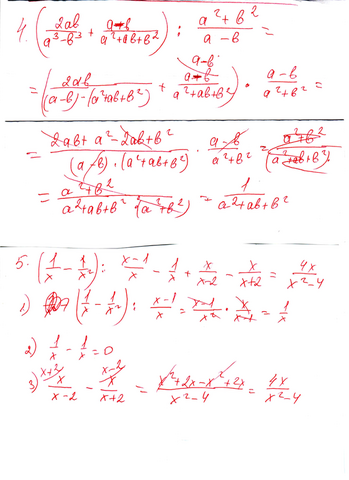 4. (2ab/(a³-b³) + (a-b)/(a²+ab+b²)) : (a²+b²)/(a-b) =
= (2ab/((a-b)-(a²+ab+b²)) + (a-b)/(a²+ab+b²)) · (a-b)/(a²+b²) =
= (2ab+a²-2ab+b²)/((a-b)·(a²+ab+b²)) · (a-b)/(a²+b²) = (a²+b²)/(a²+ab+b²)
= (a²+b²)/(a²+ab+b²(a²+b²)) = 1/(a²+ab+b²)
5. (1/x - 1/x²) : (x-1)/x - 1/x + x/(x-2) - x/(x+2) = 4x/(x²-4)
1) (1/x - 1/x²) : (x-1)/x = (x-1)/x² · x/(x-1) = 1/x
2) 1/x - 1/x = 0
3) x+2 x/(x-2) - x-2 x/(x+2) = (x²+2x-x²+2x)/(x²-4) = 4x/(x²-4)